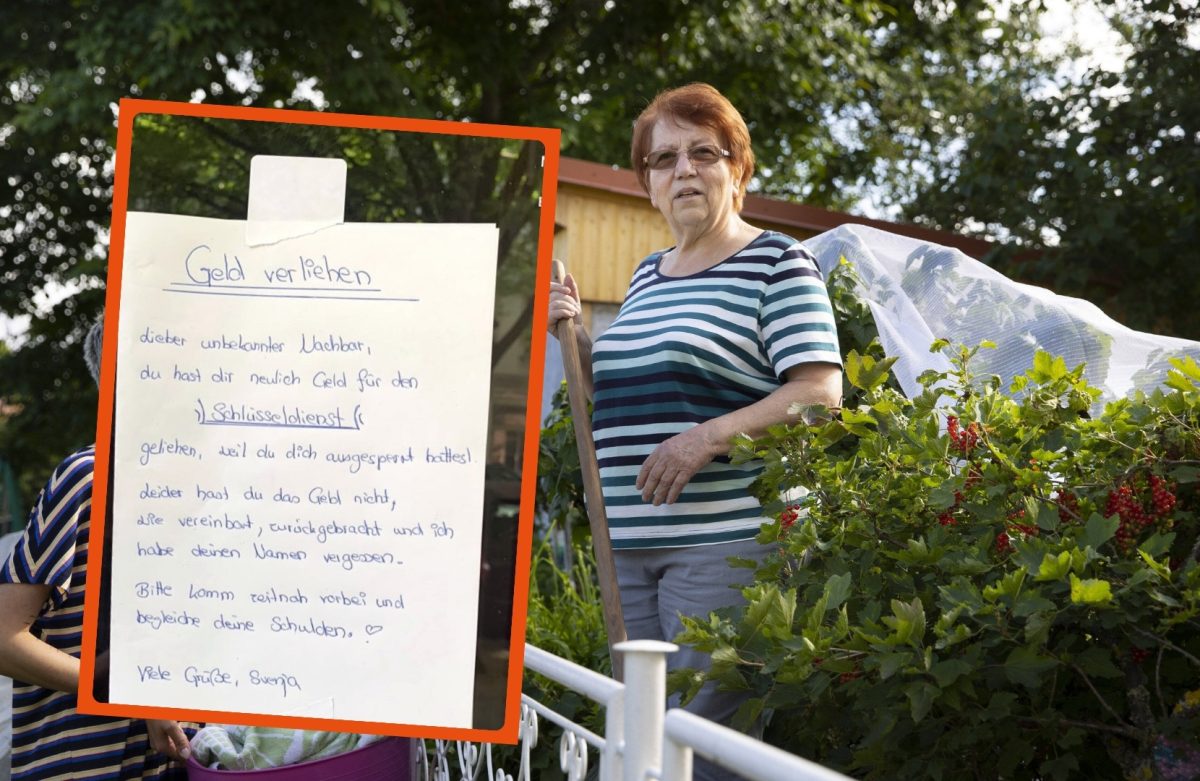 Geld verliehen
Lieber unbekannter Nachbar,
du hast dir neulich Geld für den
Schlüsseldienst
geliehen, weil du dich ausgesperrt hattest.
Leider hast du das Geld nicht,
wie vereinbart, zurückgebracht und ich
habe deinen Namen vergessen.
Bitte komm zeitnah vorbei und
begleiche deine Schulden. ♡
Viele Grüße, Svenja